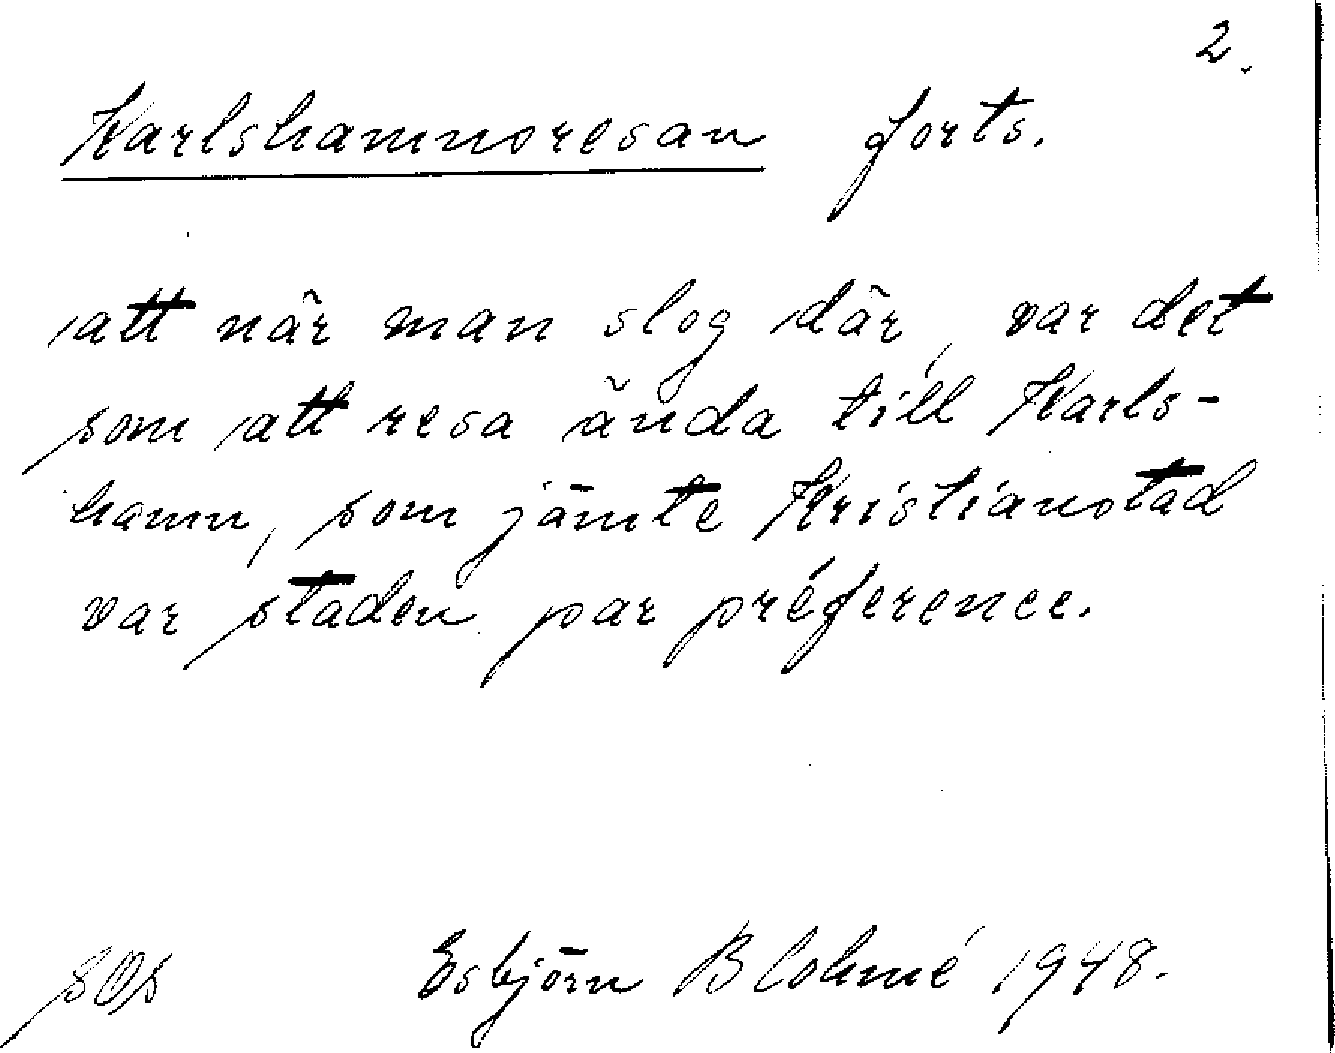 2.
Karlshamnsresan forts.
att när man slog där, var det
som att resa ända till Karls-
hamn, som jämte Kristianstad
var staden par préference.
Esbjörn Blohmé 1948.